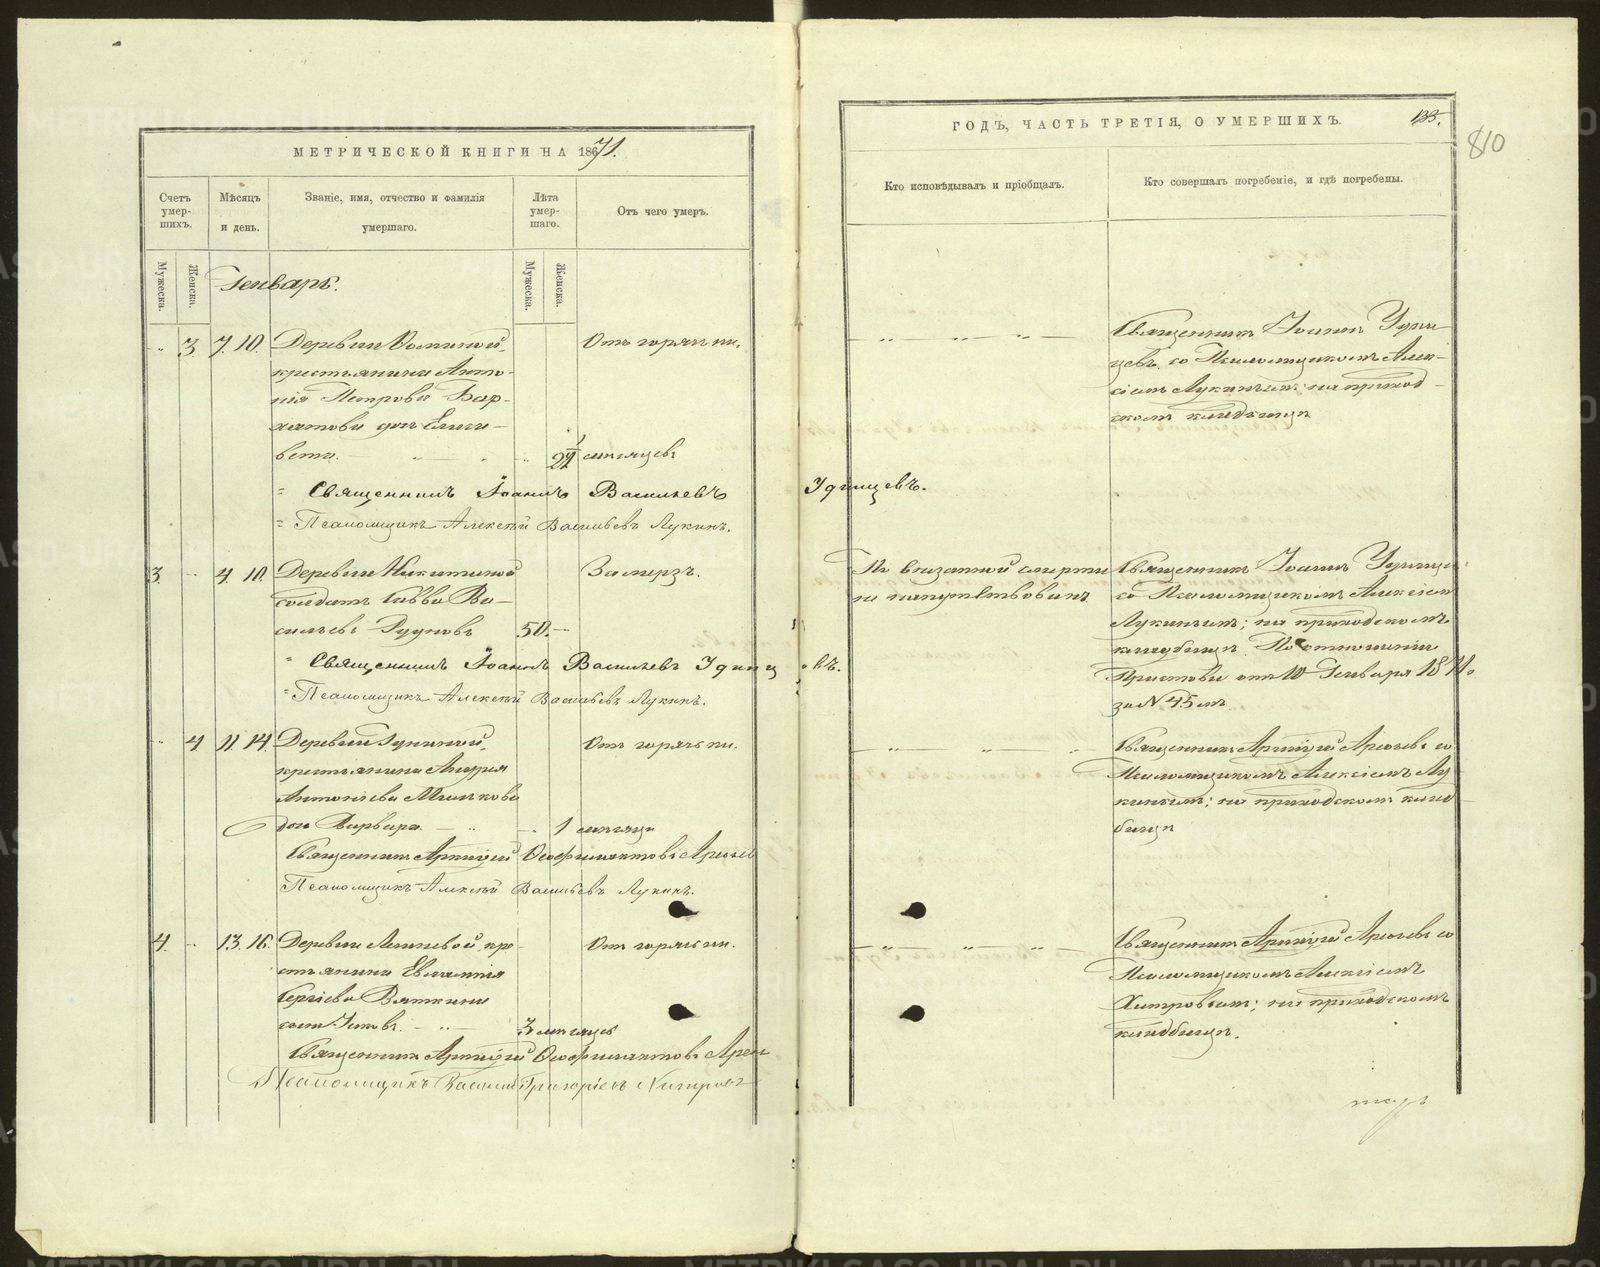 МЕТРИЧЕСКОЙ КНИГИ НА 1871.
Счетъ умерших.
Мужеска.
Женска.
Мѣсяцъ и день.
Званіе, имя, отчество и фамилія умершаго.
Лѣта умершаго.
Мужеска.
Женска.
Отъ чего умеръ.
Генварь.
3 7. 10. Деревни
крестьянина Анто-
нія Петрова Бар-
хатова дочь Елиса-
вета. 2½ мѣсяцев
Отъ горячки.
Священникъ Іоаннъ Васильевъ Удинцевъ.
Псаломщикъ Алексѣй Васильевъ Лукинъ.
3. 4. 10. Деревни Никитиной
солдатъ Савва Ва-
сильевъ Рудновъ 50.
Замерзъ.
Священникъ Іоаннъ Васильевъ Удинцевъ.
Псаломщикъ Алексѣй Васильевъ Лукинъ.
4 11. 14. Деревни
крестьянина Андрея
Антоніева
дочь Варвара 1 мѣсяца
Отъ горячки.
Священникъ Аркадій Феофилактовъ
Псаломщикъ Алексѣй Васильевъ Лукинъ.
4. 13. 16. Деревни кре-
стьянина Евлампія
Сергіева Вяткина
сынъ Іаковъ. 3 мѣсяцев
Отъ горячки.
Священникъ Аркадій Феофилактовъ
Псаломщикъ Василій Григоріевъ Хитровъ
ГОДЪ, ЧАСТЬ ТРЕТІЯ, О УМЕРШИХЪ.
133.
810
Кто исповѣдывалъ и пріобщалъ.
Кто совершалъ погребеніе, и гдѣ погребены.
Священникъ Іоаннъ Удин-
цевъ со Псаломщикомъ Алек-
сіемъ Лукинымъ; на приход-
скомъ кладбищѣ
По внезапной смерти
не напутствованъ.
Священникъ Іоаннъ Удинце
со Псаломщикомъ Алексіемъ
Лукинымъ; на приходскомъ
кладбищѣ. По отношенію
Пристава отъ 10 Генваря 1871.
за № 45мъ
Священникъ Аркадій со
Псаломщикомъ Алексіемъ Лу
кинымъ; на приходскомъ клад
бищѣ
Священникъ Аркадій со
Псаломщикомъ
Хитровымъ; на приходскомъ
кладбищѣ.
METRIKI.GASO-URAL.RU